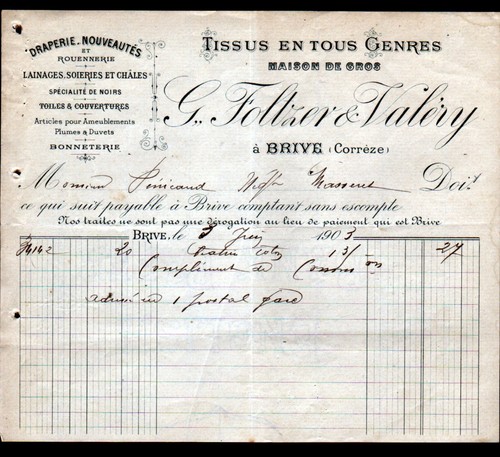 DRAPERIE. NOUVEAUTÉS
ET
ROUENNERIE
LAINAGES, SOIERIES ET CHÂLES
SPÉCIALITÉ DE NOIRS
TOILES & COUVERTURES
Articles pour Ameublements
Plumes & Duvets
BONNETERIE
TISSUS EN TOUS GENRES
MAISON DE GROS
G. Foltzer & Valéry
à BRIVE (Corrèze)
Monsieur Masseret Doit
ce qui suit payable à Brive comptant sans escompte
Nos traites ne sont pas une dérogation au lieu de paiement qui est Brive
BRIVE, le 3 1903
20 27
Complément de
1 postal gare